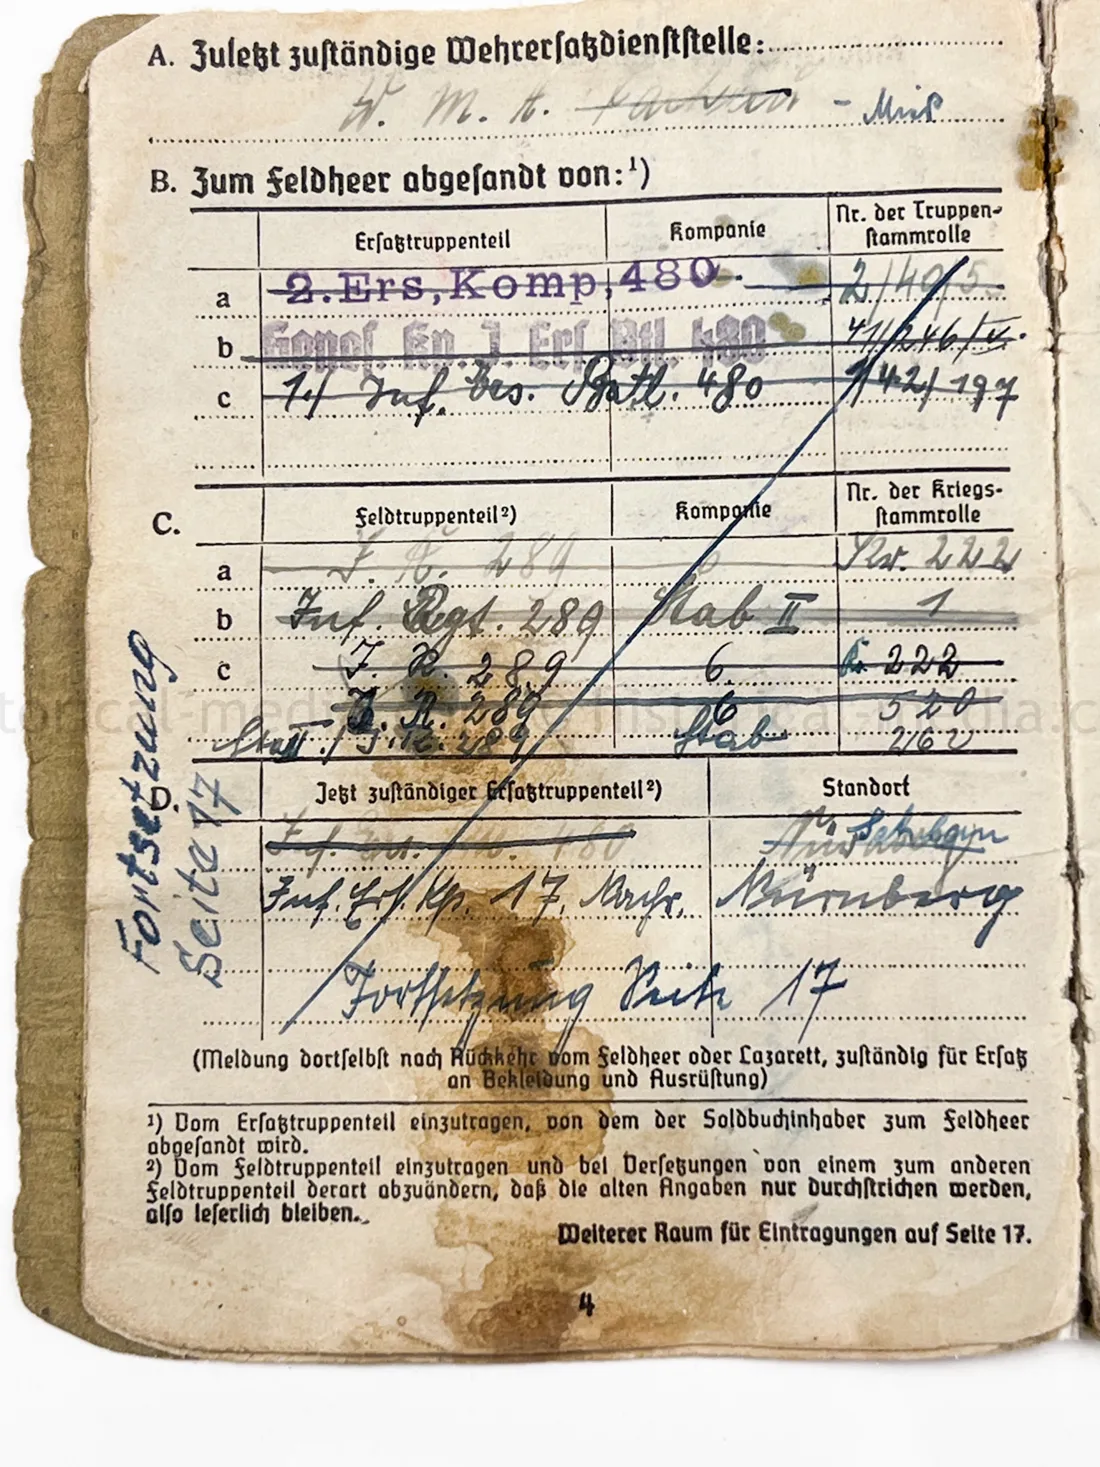 A. Zuletzt zuständige Wehrersatzdienststelle:
W. M. A. – Mies
B. Zum Feldheer abgesandt von:¹)
Ersatztruppenteil Kompanie Nr. der Truppen-
stammrolle
a 2.Ers,Komp,480. 2/40/5
b Genes. Kp. J. Ers. Btl. 480 41/246/
c 1./ Inf. Ers. Batl. 480 1/42/197
C. Feldtruppenteil²) Kompanie Nr. der Kriegs-
stammrolle
a J. R. 289 6 Kr. 222
b Inf. Rgt. 289 Stab II 1
c J. R. 289 6. Kr. 222
J. R. 289 6 520
Stab II./ J. R. 289 Stab 216
Fortsetzung
Seite 17
D. Jetzt zuständiger Ersatztruppenteil²) Standort
480
Inf. Ers. Kp. 17. Nachr. Nürnberg
Fortsetzung Seite 17
(Meldung dortselbst nach Rückkehr vom Feldheer oder Lazarett, zuständig für Ersatz
an Bekleidung und Ausrüstung)
¹) Vom Ersatztruppenteil einzutragen, von dem der Soldbuchinhaber zum Feldheer
abgesandt wird.
²) Vom Feldtruppenteil einzutragen und bei Versetzungen von einem zum anderen
Feldtruppenteil derart abzuändern, daß die alten Angaben nur durchstrichen werden,
also leserlich bleiben.
Weiterer Raum für Eintragungen auf Seite 17.
4